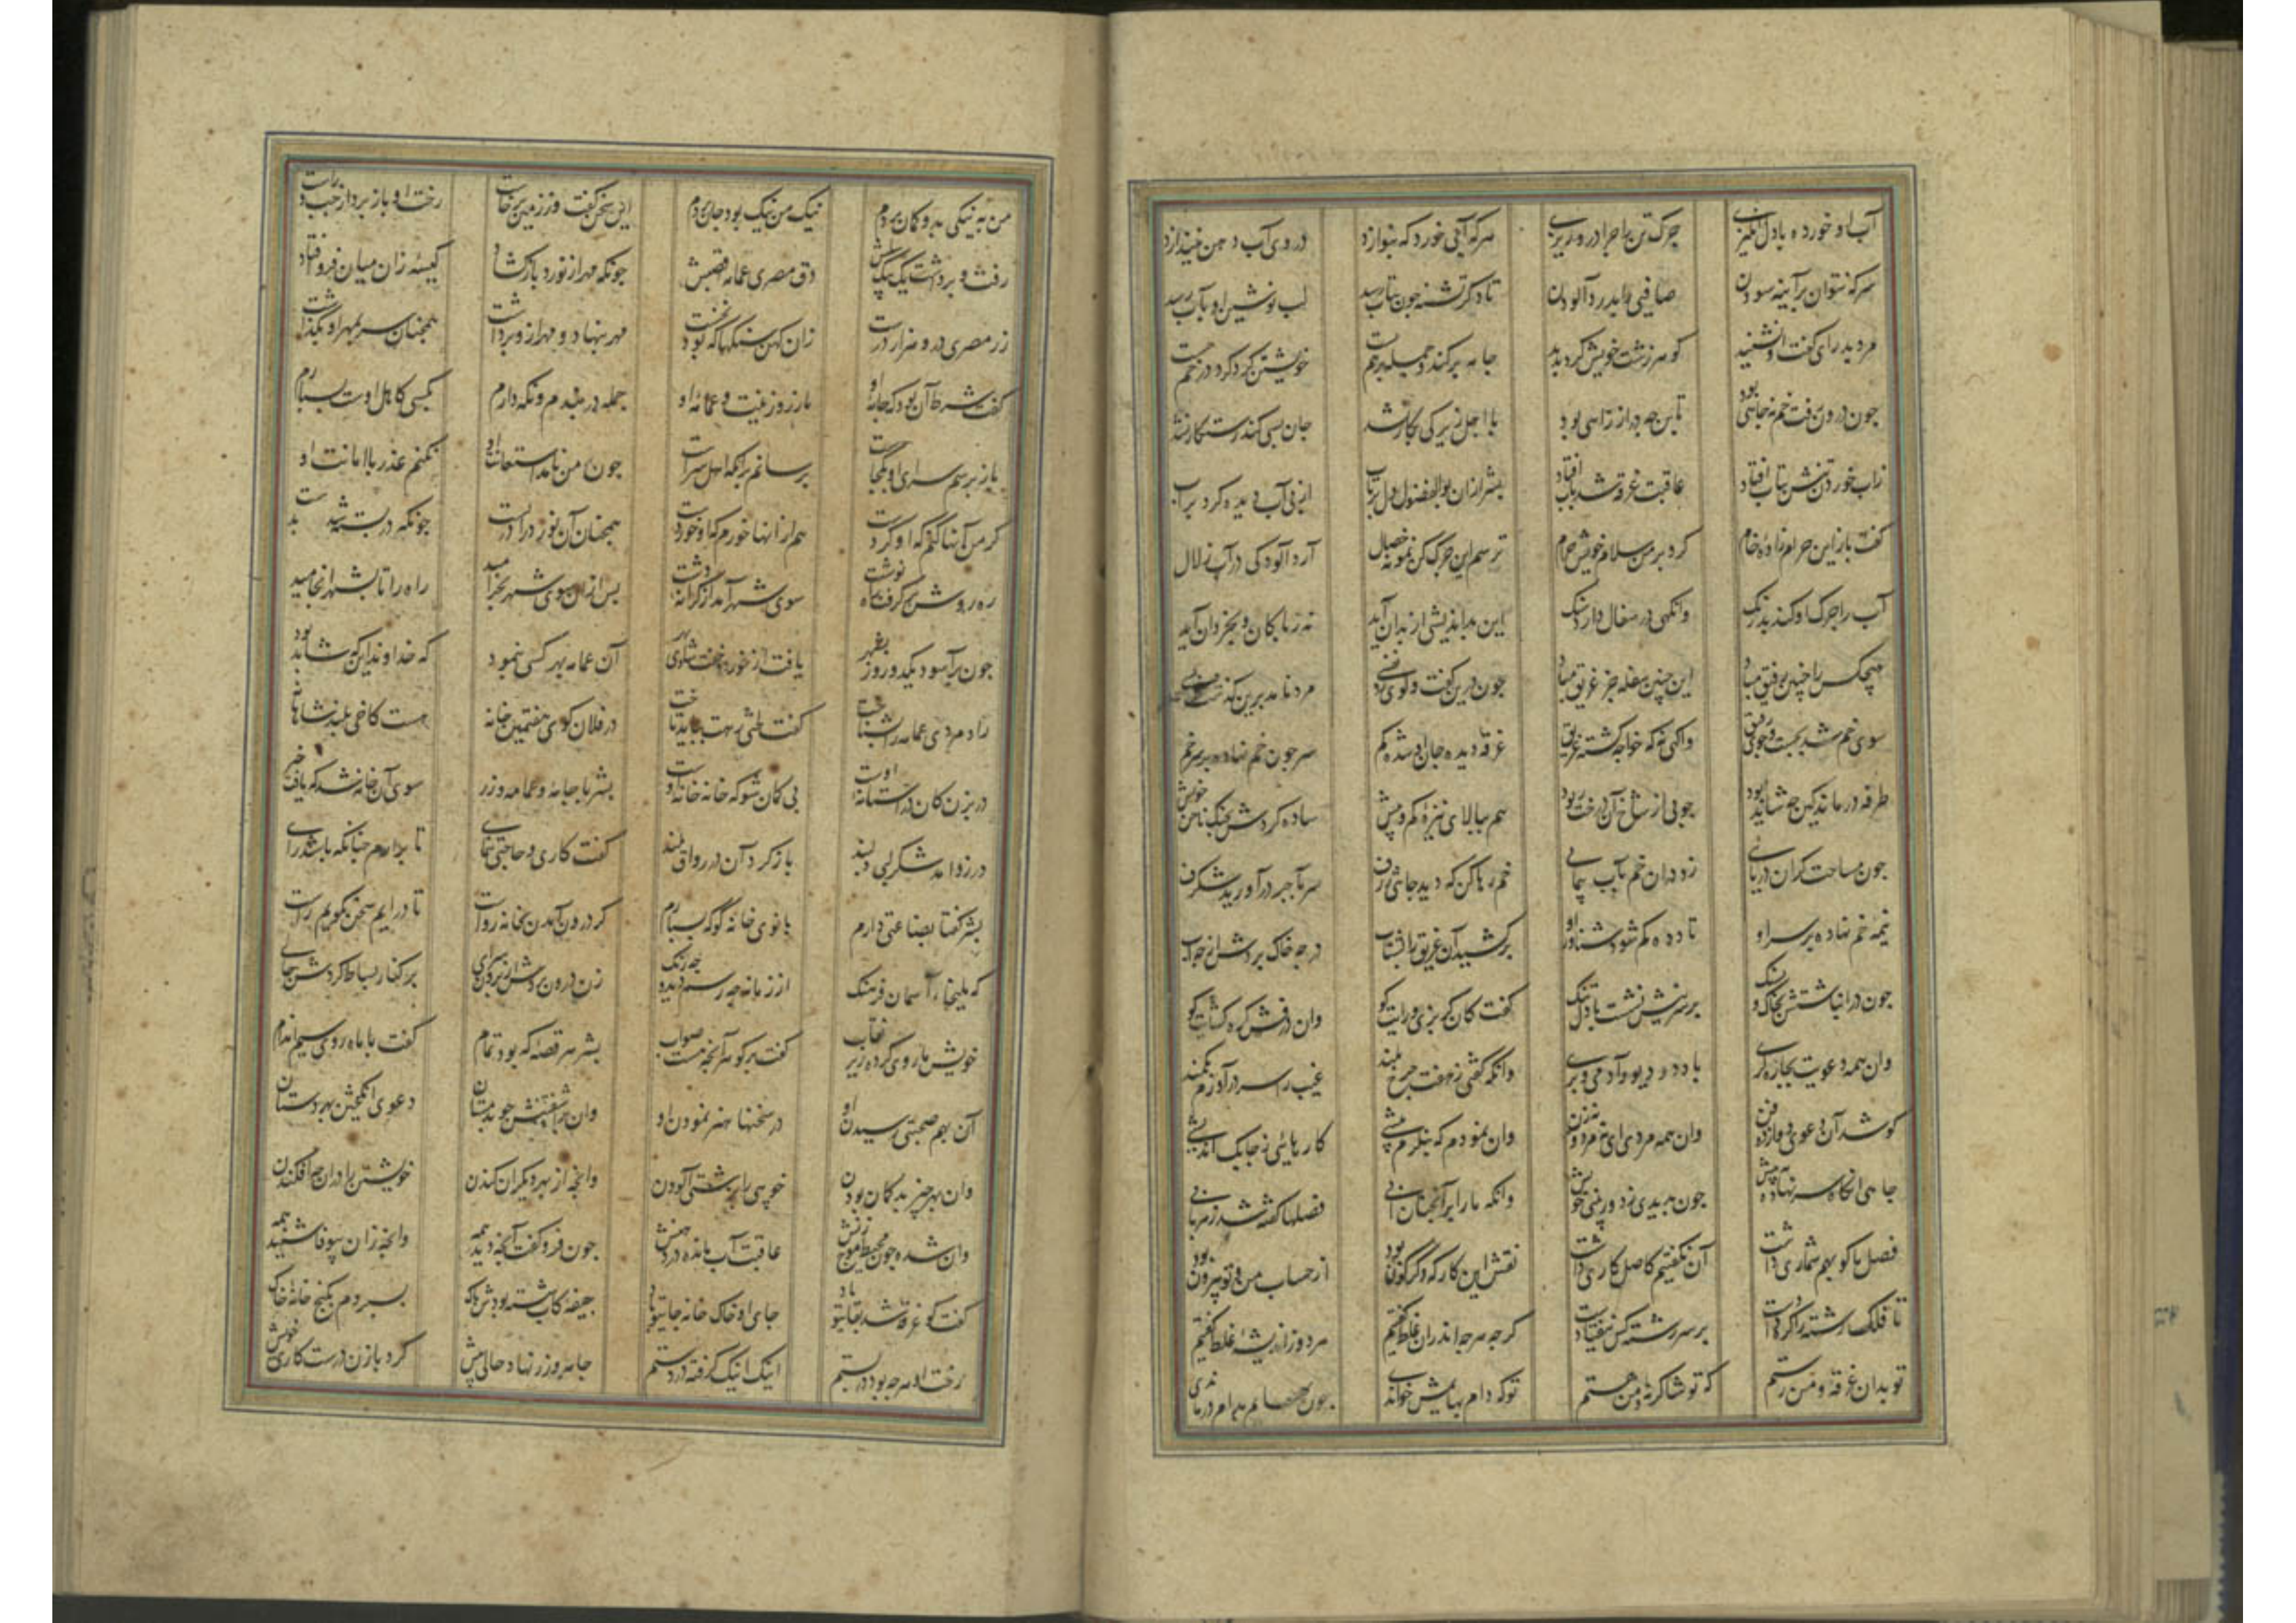 آب او خورده با دل انگیزی چرک تن را چرا درو ریزی هرکه آبی خورد که بنوازد در وی آب دهن نیندازد
سرکه نتوان بر آینه سودن صافیی را بدرد آلودن تا دگر تشنه چون بتاب رسد لب نوشین او بآب رسد
مرد بدرای گفت او نشنید گوهر زشت خویش کرد پدید جامه برکند و جمله برهم بست خویشتن گرد کرد در خم جست
چون درون رفت خم نه چاهی بود تا بن چه دراز راهی بود با اجل زیرکی بکار نشد جان بسی کند رستگار نشد
زاب خوردن تنش بتاب افتاد عاقبت غرقه شد بآب افتاد بشر ازان بوالفضول دل برتاب از پی آب دیده کرد پرآب
گفت باز این حرام زاده خام کرد بر من سلام خویش حرام ترسم این چرک گن نمونه خصال آرد آلودگی در آب زلال
آب را چرک او کند بدرنگ وانگهی در سفال دارد سنگ این بداندیشی از بدان آید نه ز پاکان و بخردان آید
هیچکس را چنین رفیق مباد این چنین سفله جز غریق مباد چون درین گفت و گوی زد نفسی مرد نامد برین گذشت
سوی خم شد بجست و جوی رفیق واگهی نه که خواجه گشته غریق غرقه دید جان او شده گم سر چون خم نهاده بر سر خم
طرفه درماند کین چه شاید بود چوبی از شاخ آن درخت ربود هم ببالای نیزه کم و بیش ساده کردش بچنگ ناخن خویش
چون مساحت گران دریایی زد در آن خم بآب پیمایی خم رها کن که دید چاهی ژرف سر بآجر درآورید شگرف
نیمه خم نهاده بر سر او تا دده کم شود شناور او برکشید آن غریق را بشتاب در چه خاک بردش از چه آب
چون در انباشتش بخاک و بسنگ بر سرینش نشست با دل تنگ گفت کان گربزی و رایت کو وان درفش گره گشایت کو
وان همه دعویت بچاره گری با دد و دیو و آدمی و پری وانکه گفتی ز هفت چرخ بلند غیب را سر درآورم بکمند
کو شد آن دعوی دوازده فن وان همه مردی ای نه مرد و نه زن وان نمودم که بنگرم پیشی کارهایی نه چابک اندیشی
چاهی آنگاه سر نهاده به پیش چون ندیدی بدور بینی خویش وانکه ما را بر آنچنان آبی فصلها گفته شد ز هر بابی
فصل ما گو بهم شماری داشت آن نگفتیم کاصل کاری داشت نقش این کارگه دگرگون بود از حساب من و تو بیرون بود
تا فلک رشته را گره دادست بر سر رشته کس نیفتادست گرچه هرچه اندران غلط گفتیم هر دو زاندیشه غلط گفتیم
تو بدان غرقه و من رستم که تو شاکر نه و من هستم تو که دام بهایمش خواندی چون بهایم بدام درماندی
من به نیکی برو گمان بردم نیک من نیک بود جان بردم این سخن گفت و ز زمین برخاست رخت او باز برد از چپ و راست
رفت و برداشت یک بیک سلبش دق مصری عمامه قصبش چونکه مهر از نورد بازگشاد کیسه زان میان فرو افتاد
زر مصری درو هزار درست زان کهن سنگها که بود نخست مهر بنهاد و مهر ازو برداشت همچنان سر بمهر او بگذاشت
گفت شرط آن بود که جامه او با زر و زینت و عمامه او جمله در بندم و نگه دارم بکسی کاهل اوست بسپارم
باز پرسم سرای او بکجاست برسانم بر آنکه اهل سراست چون ز من نامد استعانت او نکنم غدر با امانت او
گر من آنها کنم که او کردست هم ازانها خورم که او خوردست همچنان آن نورد را در بست چونکه در بسته شد
ره روش گرفت راه نوشت سوی شهر آمد از کرانه دشت پس ازان سوی شهر بخرامید راه را تا بشهر انجامید
چون برآسود یکدو روز بشهر یافت از خورد و خفت شادی بهر آن عمامه بهر کسی نمود که خداوند این که شاید بود
رادمردی عمامه را بشناخت گفت لختی رهت بباید تاخت در فلان کوی هفتمین خانه هست کاخی بلند شاهانه
در بزن کان در آستانه اوست بی گمان شو که خانه خانه اوست بشر با جامه و عمامه و زر سوی آن خانه شد که یافت خبر
در زد آمد شکر لبی دلبند باز کرد آن در رواق بلند گفت کاری و حاجتی بنمای تا برآرم چنانکه باشد رای
بشر گفتا بضاعتی دارم بانوی خانه گو که بسپارم گر درون آمدن بخانه رواست تا درآیم سخن بگویم راست
که ملیخای آسمان فرهنگ از زمانه چه رسم دید چه رنگ زن درون بردش از برون سرای بر کنار بساط کردش جای
خویشتن را روی کرده زیر نقاب گفت برگو هر آنچه هست صواب بشر هر قصه که بود تمام گفت با ماه روی سیم اندام
آن بهم صحبتی رسیدن او در سخنها هنر نمودن او وان برآشفتنش چو بدمستان دعوی انگیختن بهر دستان
وان بهر چیز بد گمان بودن خوبیی را بزشتی آلودن وان چه از بهر دیگران کندن خویشتن را دران چه افکندن
وان شده چون محیط موج زنش عاقبت آب مانده در دهنش چون فرو گفت آنچه دید همه وانچه زان بیوفا شنید همه
گفت کو غرقه شد بقای تو باد جای او خاک خانه جای تو باد جیفه کاب شسته بودش پاک بسپردم بکنج خانه خاک
رخت او هرچه بود در بستم اینک اینک گرفته در دستم جامه و زر نهاد حالی پیش کرد با زن درست کاری خویش